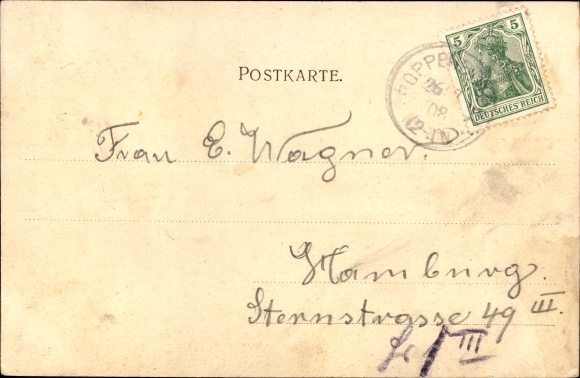 5 5
DEUTSCHES REICH
26
08
12-1N
POSTKARTE.
Frau E. Wagner.
Hamburg.
Sternstrasse 49 III.
III